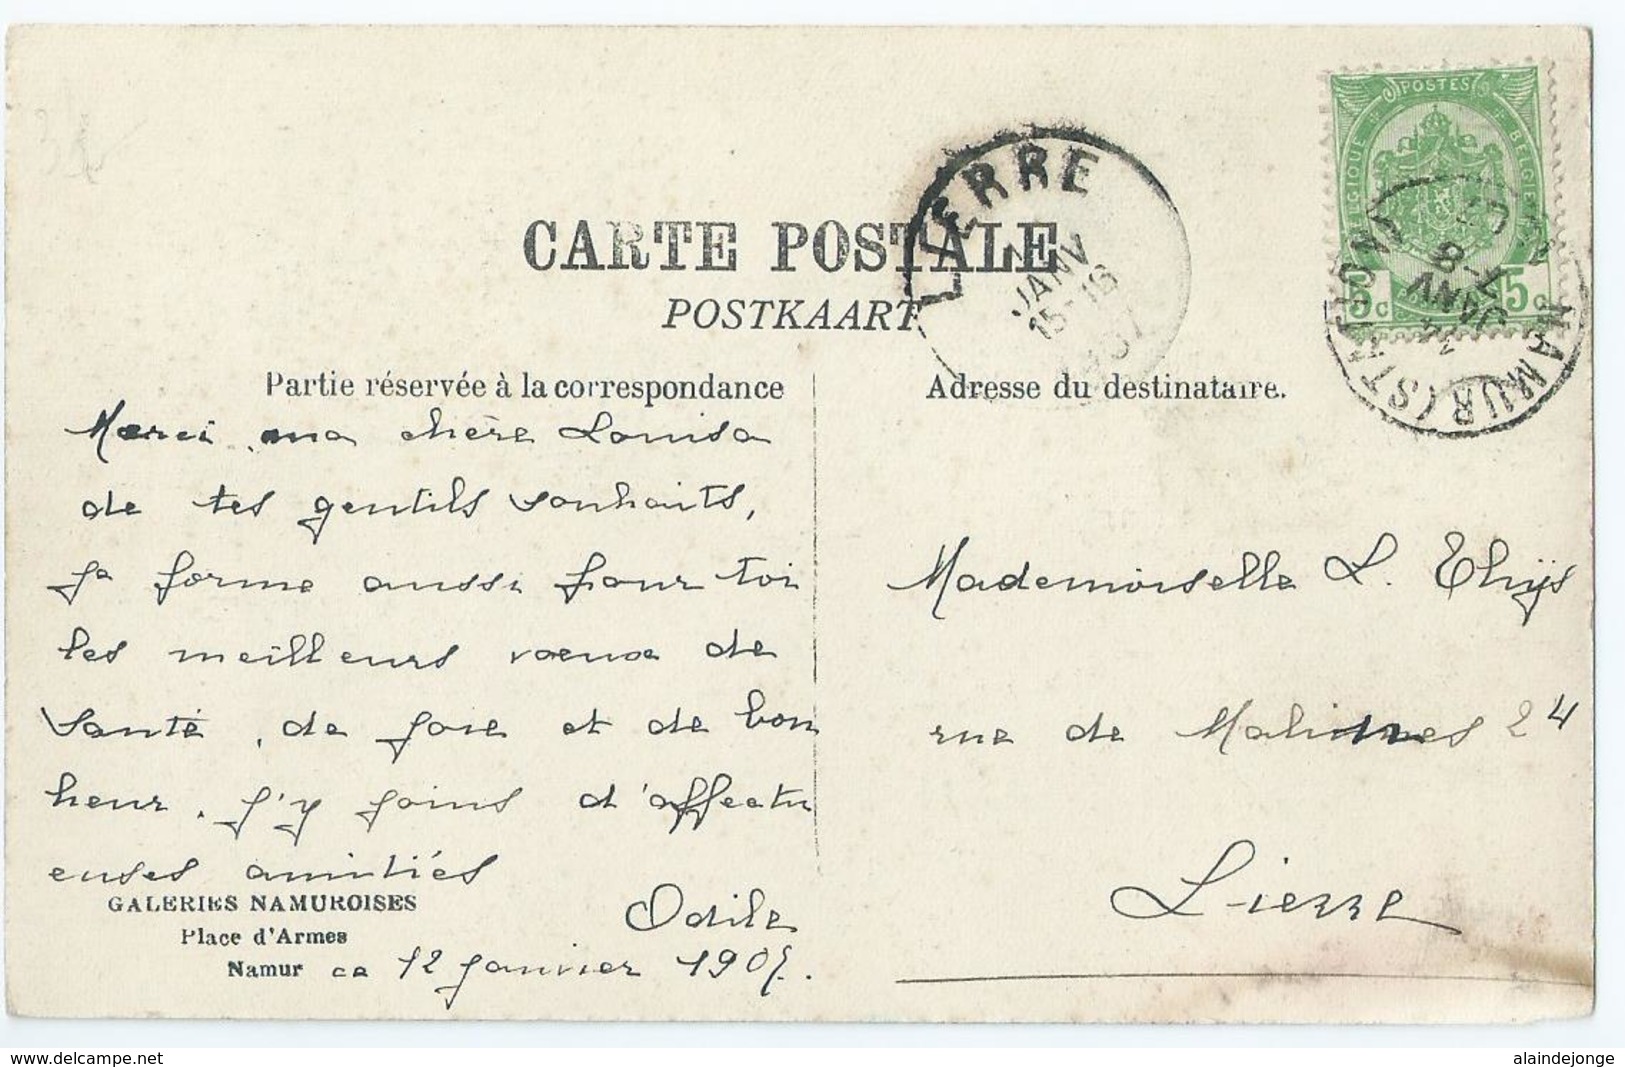 CARTE POSTALE
POSTKAART
Partie réservée à la correspondance
Adresse du destinataire.
POSTES
BELGIQUE BELGIE
5c 5c
LIERRE
JANV
15-16
NAMUR (STATION)
7-8
JANV
Merci ma chère Louisa
de tes gentils souhaits,
je forme aussi pour toi
les meilleurs voeux de
santé, de joie et de bon
heur. J'y joins d'affectu
euses amitiés
Odile
GALERIES NAMUROISES
Place d'Armes
Namur ce 12 janvier 1907.
Mademoiselle L. Thijs
rue de Malines 24
Lierre
www.delcampe.net
alaindejonge